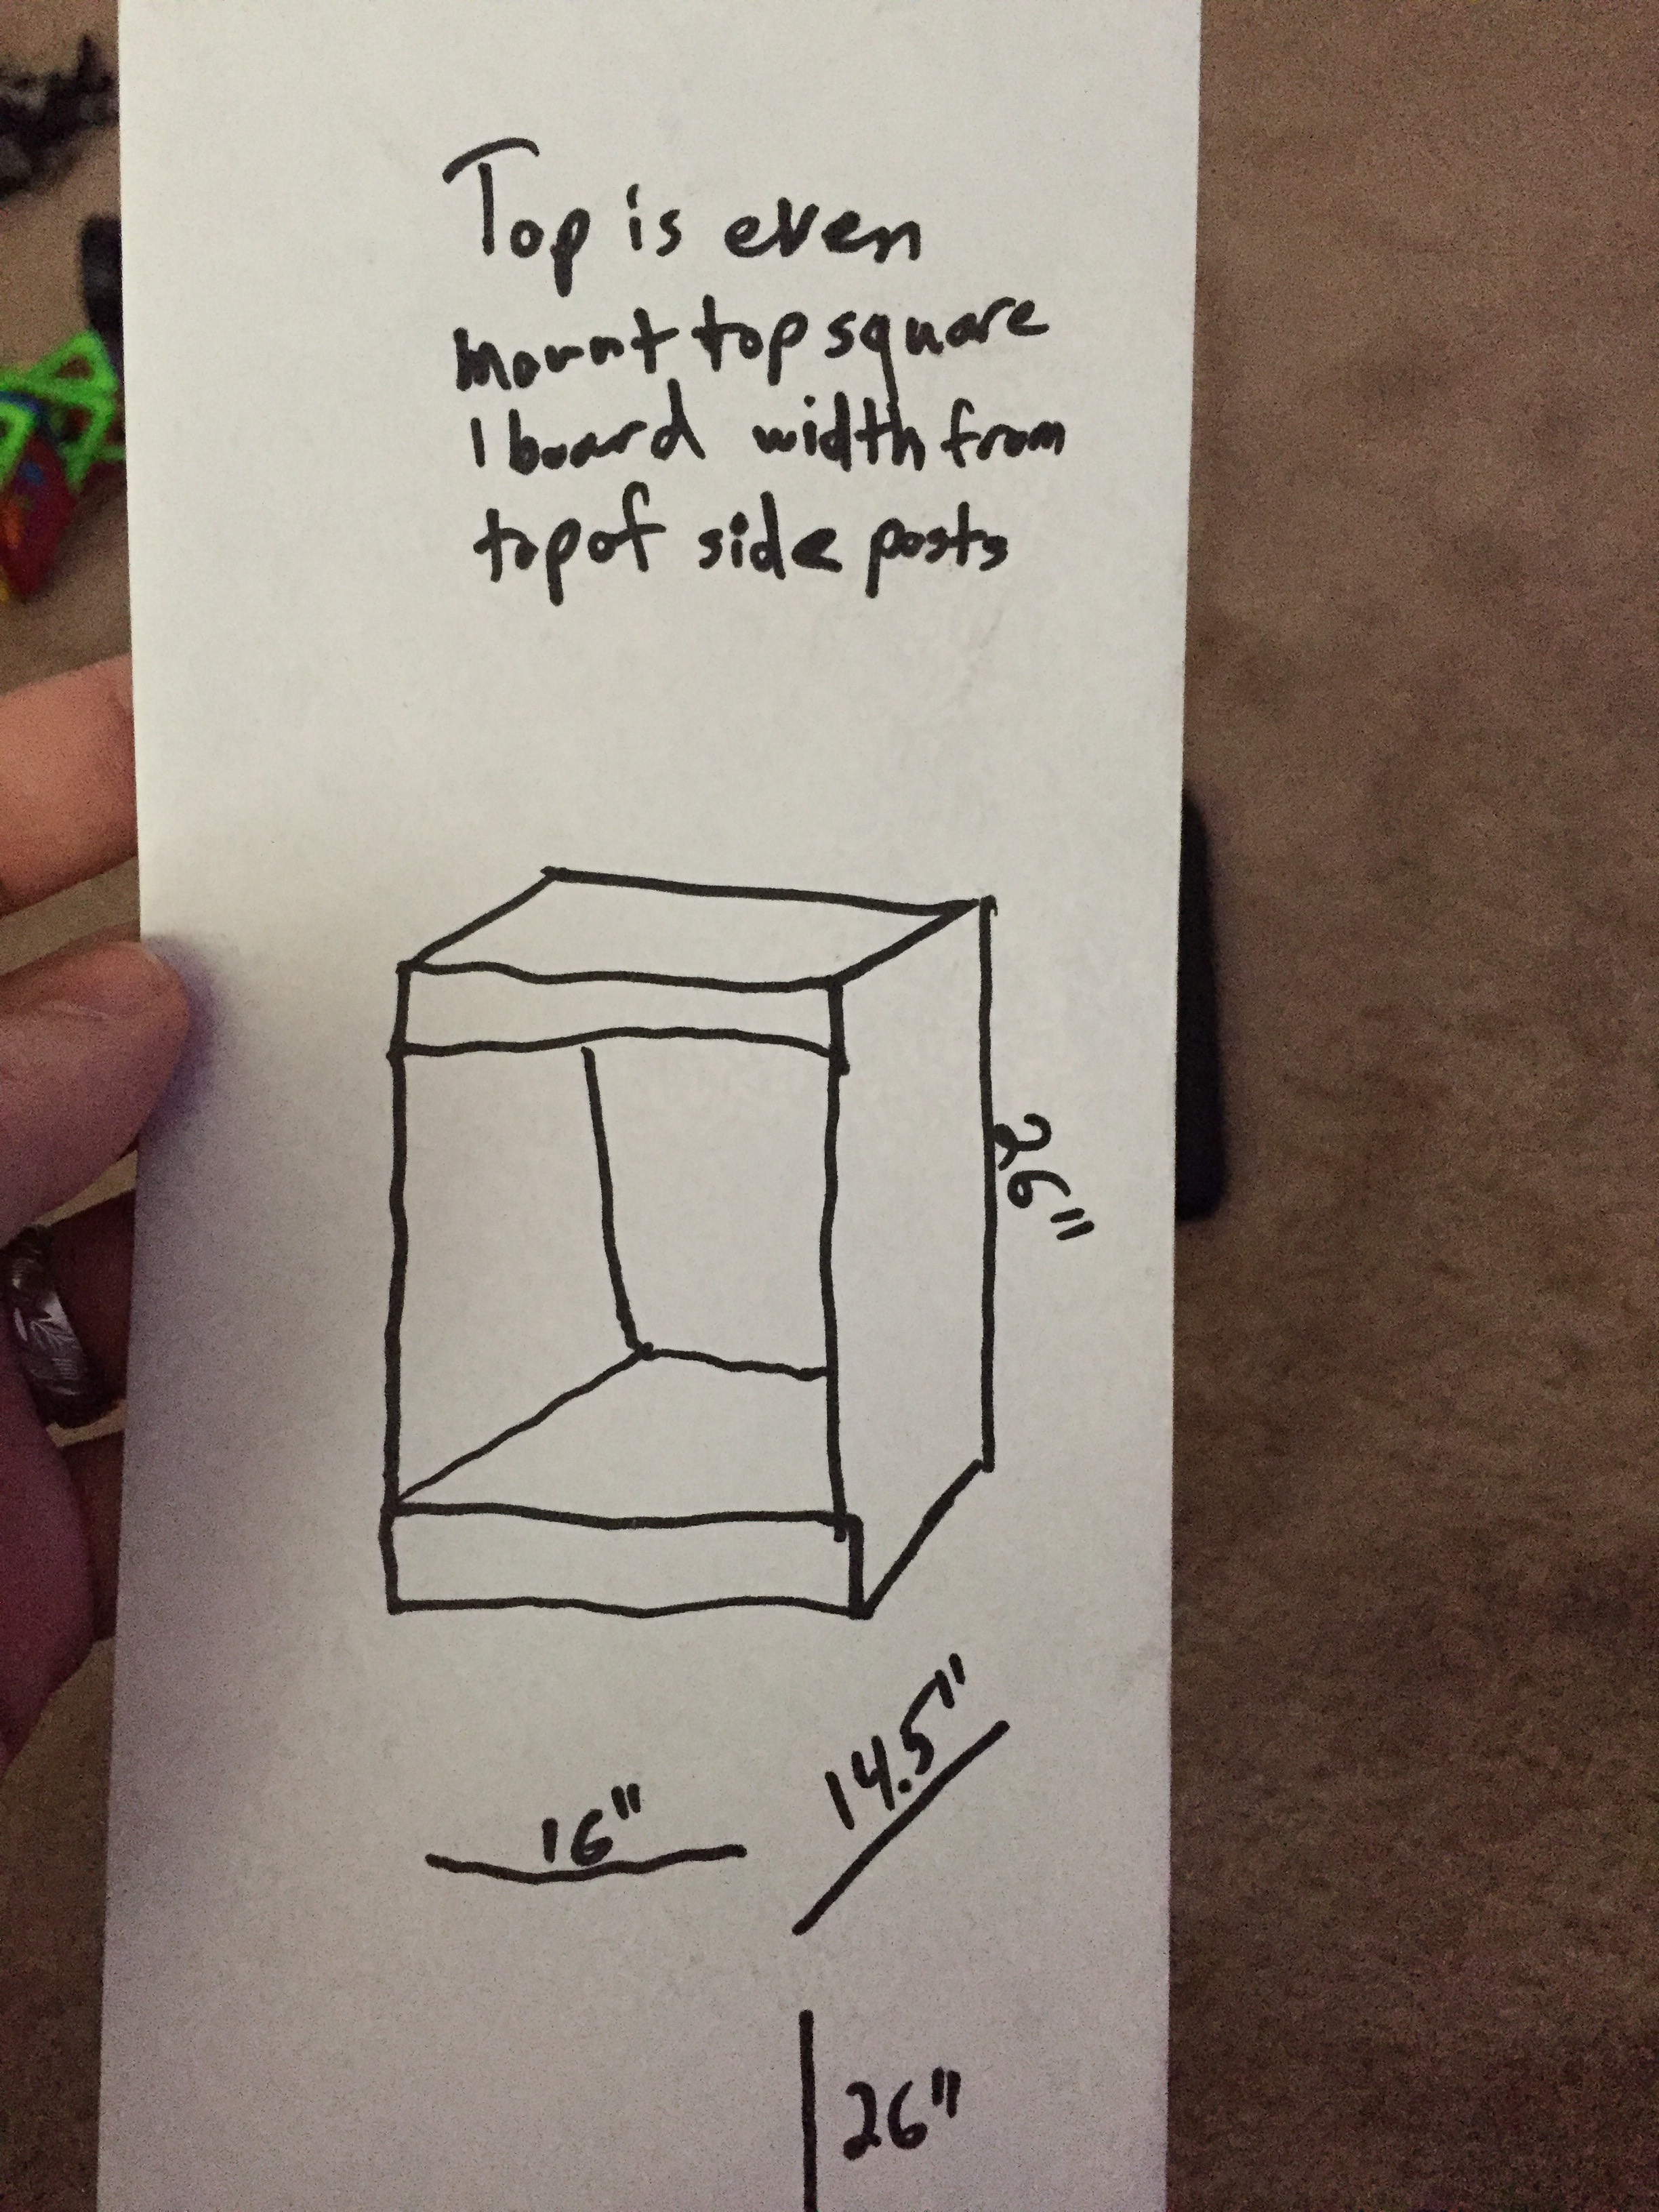 Top is even
mount top square
1 board width from
top of side posts
26"
14.5"
16"
26"